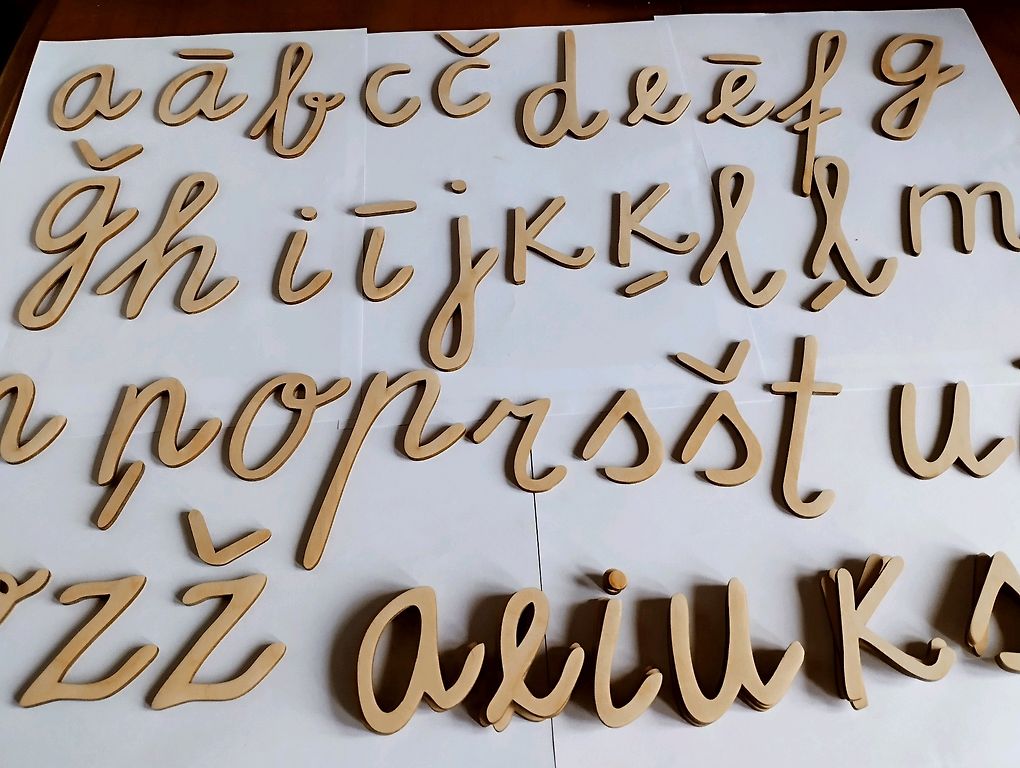 a ā b c č d e ē f g
ģ h i ī j k ķ l ļ m
n ņ o p r s š t u
z ž a e i u k s